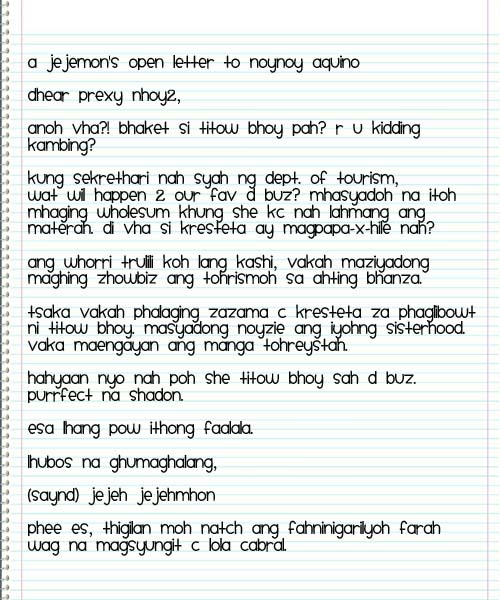 a jejemon's open letter to noynoy aquino
dhear prexy nhoy2,
anoh vha?! bhaket si titow bhoy pah? r u kidding
kambing?
kung sekrethari nah syah ng dept. of tourism,
wat wil happen 2 our fav d buz? mhasyadoh na itoh
mhaging wholesum khung she kc nah lahmang ang
materah. di vha si kresteta ay magpapa-x-hile nah?
ang whorri truliii koh lang kashi, vakah maziyadong
maghing zhowbiz ang tohrismoh sa ahting bhanza.
tsaka vakah phalaging zazama c kresteta za phaglibowt
ni titow bhoy. masyadong noyzie ang iyohng sisterhood.
vaka maengayan ang manga tohreystah.
hahyaan nyo nah poh she titow bhoy sah d buz.
purrfect na shadon.
esa lhang pow ithong faalala.
lhubos na ghumaghalang,
(saynd) jejeh jejehmhon
phee es, thigilan moh natch ang fahninigarilyoh farah
wag na magsyungit c lola cabral.